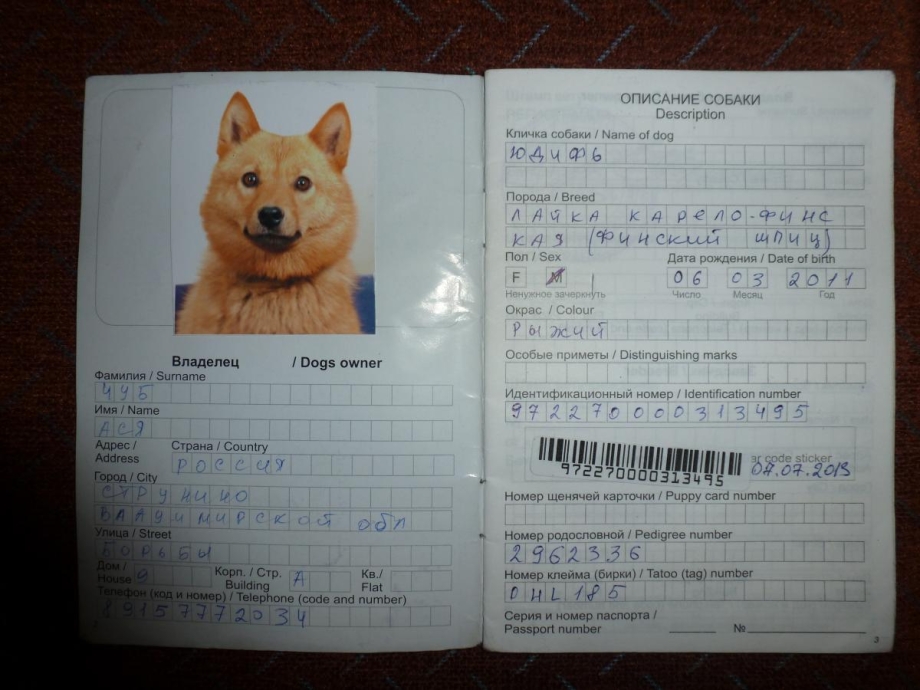 Владелец / Dogs owner
Фамилия / Surname
ЧУБ
Имя / Name
АСЯ
Адрес / Address
Страна / Country
РОССИЯ
Город / City
СТРУНИНО
ВЛАДИМИРСКОЙ ОБЛ
Улица / Street
БОРЬБЫ
Дом / House 9 Корп. / Стр. Building А Кв./ Flat
Телефон (код и номер) / Telephone (code and number)
89157772034
ОПИСАНИЕ СОБАКИ
Description
Кличка собаки / Name of dog
ЮДИФЬ
Порода / Breed
ЛАЙКА КАРЕЛО-ФИНС
КАЯ (ФИНСКИЙ ШПИЦ)
Пол / Sex Дата рождения / Date of birth
F M 06 03 2011
Ненужное зачеркнуть Число Месяц Год
Окрас / Colour
РЫЖИЙ
Особые приметы / Distinguishing marks
Идентификационный номер / Identification number
972270000313495
ar code sticker
972270000313495 04.07.2013
Номер щенячей карточки / Puppy card number
Номер родословной / Pedigree number
2962336
Номер клейма (бирки) / Tatoo (tag) number
OHL185
Серия и номер паспорта /
Passport number № 
3